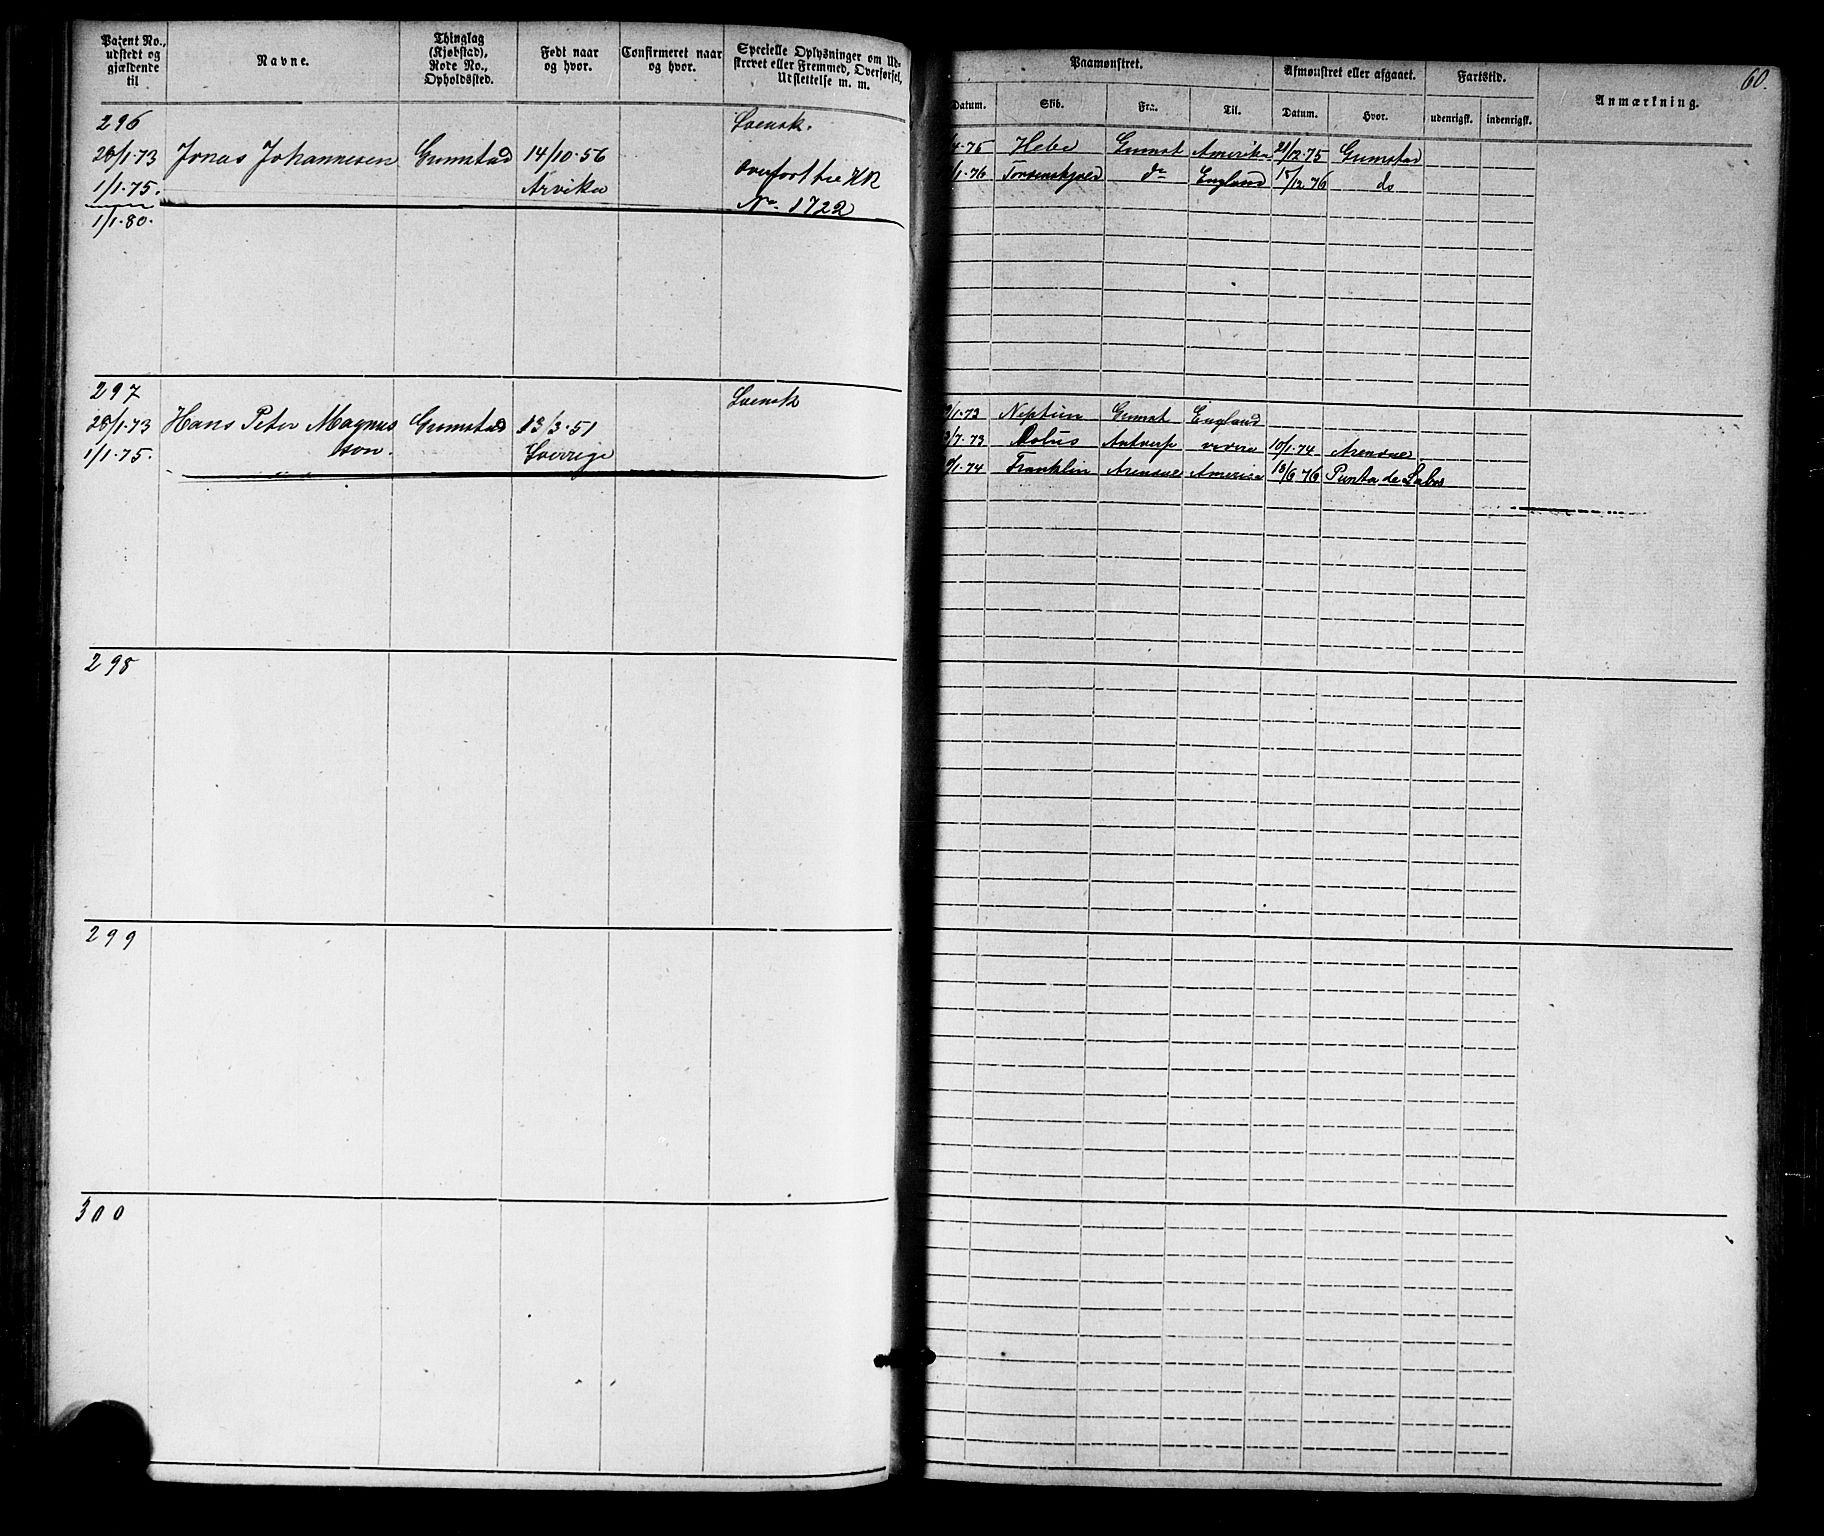 Patent No., udstedt og gjældende til
Navne.
Thinglag (Kjøbstad), Rode No., Opholdssted.
Født naar og hvor.
Confirmeret naar og hvor.
Specielle Oplysninger om Udskrevet eller Fremmed, Overførsel, Udslettelse m. m.
Paamønstret.
Afmønstret eller afgaaet.
Fartstid.
Anmærkning.
60.
Datum. Skib. Fra. Til. Datum. Hvor. udenrigsk. indenrigsk.
296 Svensk.
28/1.73 Jonas Johannesen Grimstad 14/10.56
1/1.75. Arvika overført til HR
1/1.80. No. 1722
4.75 Hebe Grimst Amerika 21/12.75 Grimstad
1.76 Tordenskjold do England 15/12 76 do
297 Svensk
28/1.73 Hans Peter Magnus Grimstad 13/3.51
1/1.75. son. Sverrige
/1.73 Neptun Grimst England
/7.73 Antverp videre 10/1.74 Arendal
/1.74 Franklin Arendal Amerika 18/6 76 Punta de
298
299
300